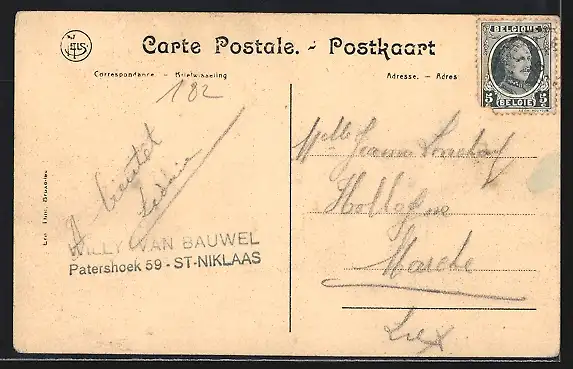 NELS
Carte Postale. - Postkaart
Correspondance - Briefwisseling
Adresse. - Adres
BELGIQUE
5 BELGIË 5
182
A bientôt
WILLY VAN BAUWEL
Patershoek 59 - ST-NIKLAAS
Ern. Thill, Bruxelles
Melle
Hollogne
Marche
Lux